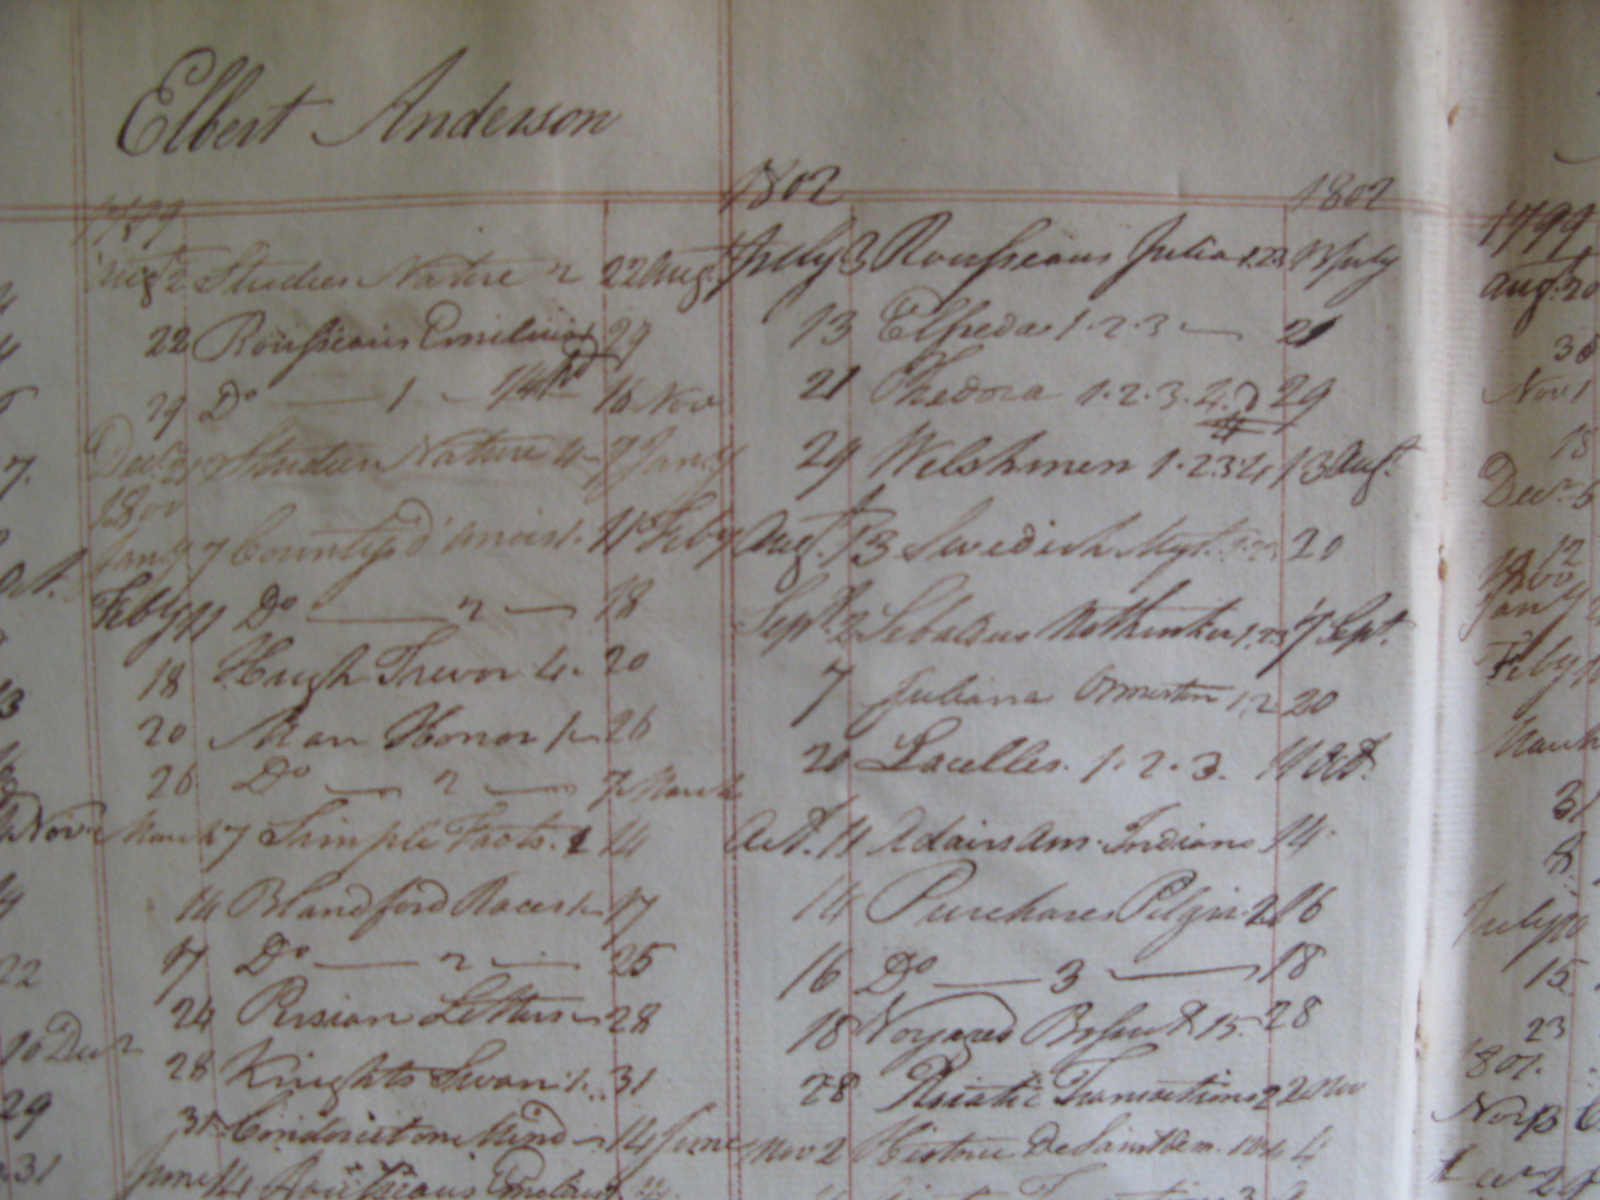 Elbert Anderson
1799
Augt 2 Studies Nature 2 22 Augt
22 Rousseaus Emilius 29
29 Do 1 16 Nov
Decr Studies Nature 4 7 Jany
1800
Jany 7 11 Feby
Feby 11 Do 2 18
18 Hugh Trevor 4. 20
20 Man Honor 1 26
26 Do 2 7 March
March 7 Simple Facts. 14
14 Blandford Races 1 17
17 Do 2 25
24 Persian Letters 28
28 Knights Swan 1. 31
31 Condorcet on Mind 14 June
June 14 Rousseaus
1802 1802
July 3 Rousseaus Julia 1.2.3 13 July
13 Elfreda 1.2.3 21
21 Thedora 1.2.3.4. 29
29 Welshmen 1.2.3.4 13 Augt
Augt. 13 Swedish Myst. 1.2.3 20
Sept. 2 Sebaldus Nothanker 1.2.3 7 Sept.
7 Juliana Ormeston 1.2 20
20 Lacelles. 1.2.3. 11 Oct.
Oct. 11 Adairs Am. Indians 14
14 Purchases Pilgri. 2 16
16 Do 3 18
18 Voyages 15 28
28 Asiatic Transactions 2 2 Nov
Nov 2 Histoire De 4
1799
Augt 20
Nov 1
Decr 5
12
1800
Jany
Feby
March
31
8
July 10
15
23
1801.
22
10 Decr
29
31